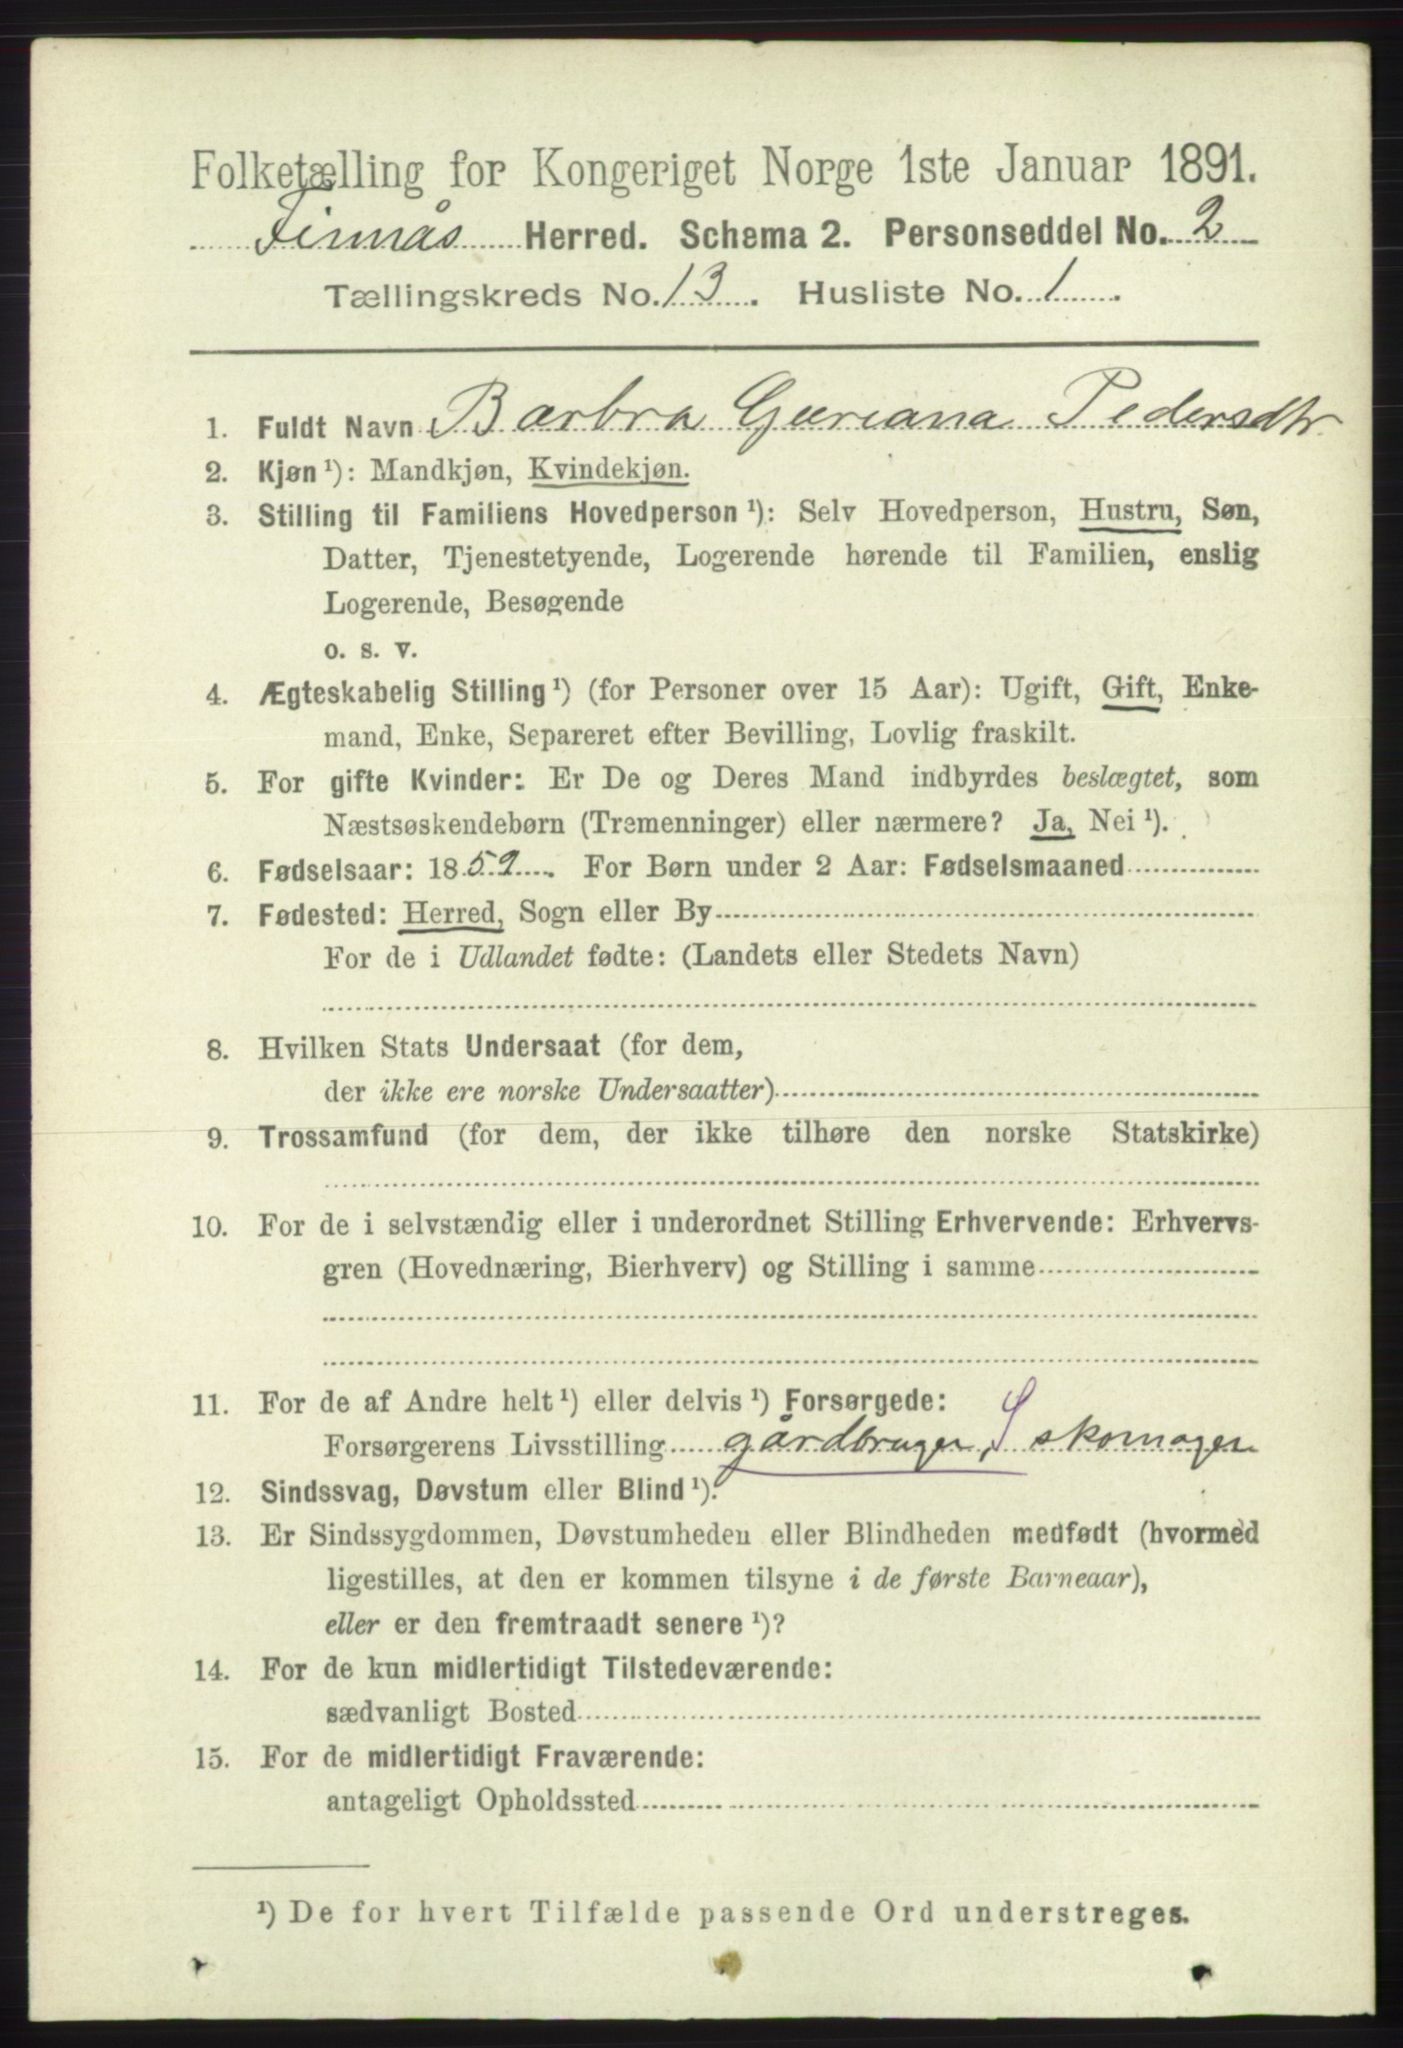 Folketælling for Kongeriget Norge 1ste Januar 1891.
Finnås Herred. Schema 2. Personseddel No. 2
Tællingskreds No. 13. Husliste No. 1.
1. Fuldt Navn Barbra Guriana Pedersdtr
2. Kjøn ¹): Mandkjøn, Kvindekjøn.
3. Stilling til Familiens Hovedperson ¹): Selv Hovedperson, Hustru, Søn,
Datter, Tjenestetyende, Logerende hørende til Familien, enslig
Logerende, Besøgende
o. s. v.
4. Ægteskabelig Stilling ¹) (for Personer over 15 Aar): Ugift, Gift, Enke-
mand, Enke, Separeret efter Bevilling, Lovlig fraskilt.
5. For gifte Kvinder: Er De og Deres Mand indbyrdes beslægtet, som
Næstsøskendebørn (Tremenninger) eller nærmere? Ja, Nei ¹).
6. Fødselsaar: 1859. For Børn under 2 Aar: Fødselsmaaned
7. Fødested: Herred, Sogn eller By
For de i Udlandet fødte: (Landets eller Stedets Navn)
8. Hvilken Stats Undersaat (for dem,
der ikke ere norske Undersaatter)
9. Trossamfund (for dem, der ikke tilhøre den norske Statskirke)
10. For de i selvstændig eller i underordnet Stilling Erhvervende: Erhvervs-
gren (Hovednæring, Bierhverv) og Stilling i samme
11. For de af Andre helt ¹) eller delvis ¹) Forsørgede:
Forsørgerens Livsstilling gårdbruger, S skomager
12. Sindssvag, Døvstum eller Blind ¹).
13. Er Sindssygdommen, Døvstumheden eller Blindheden medfødt (hvormed
ligestilles, at den er kommen tilsyne i de første Barneaar),
eller er den fremtraadt senere ¹)?
14. For de kun midlertidigt Tilstedeværende:
sædvanligt Bosted
15. For de midlertidigt Fraværende:
antageligt Opholdssted
¹) De for hvert Tilfælde passende Ord understreges.